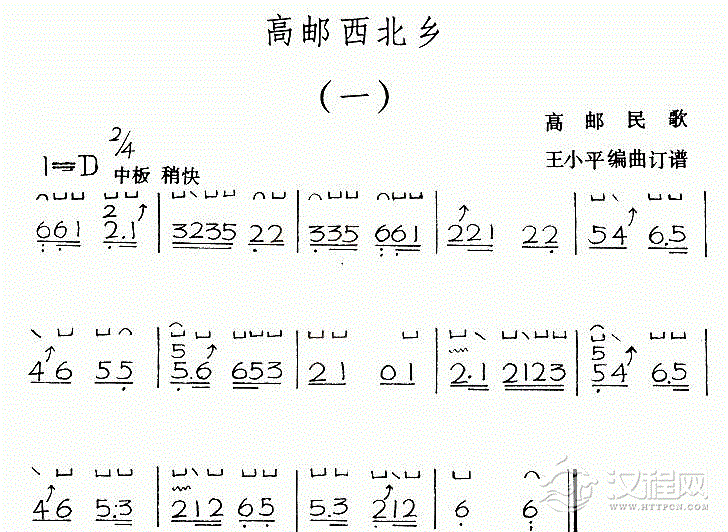 高邮西北乡
(一)
高邮民歌
1=D 2/4
中板 稍快
王小平编曲订谱
661 2 2.1 | 3235 22 | 335 661 | 221 22 | 54 6.5
46 55 | 5 5.6 653 | 21 01 | 2.1 2123 | 5 54 6.5
46 5.3 | 212 65 | 5.3 212 | 6 6
汉程网
HTTPCN.COM